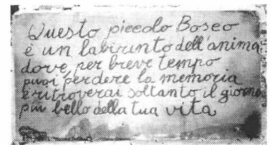 Questo piccolo Bosco
è un labirinto dell'anima
dove per breve tempo
puoi perdere la memoria
e ritroverai soltanto il giorno
più bello della tua vita